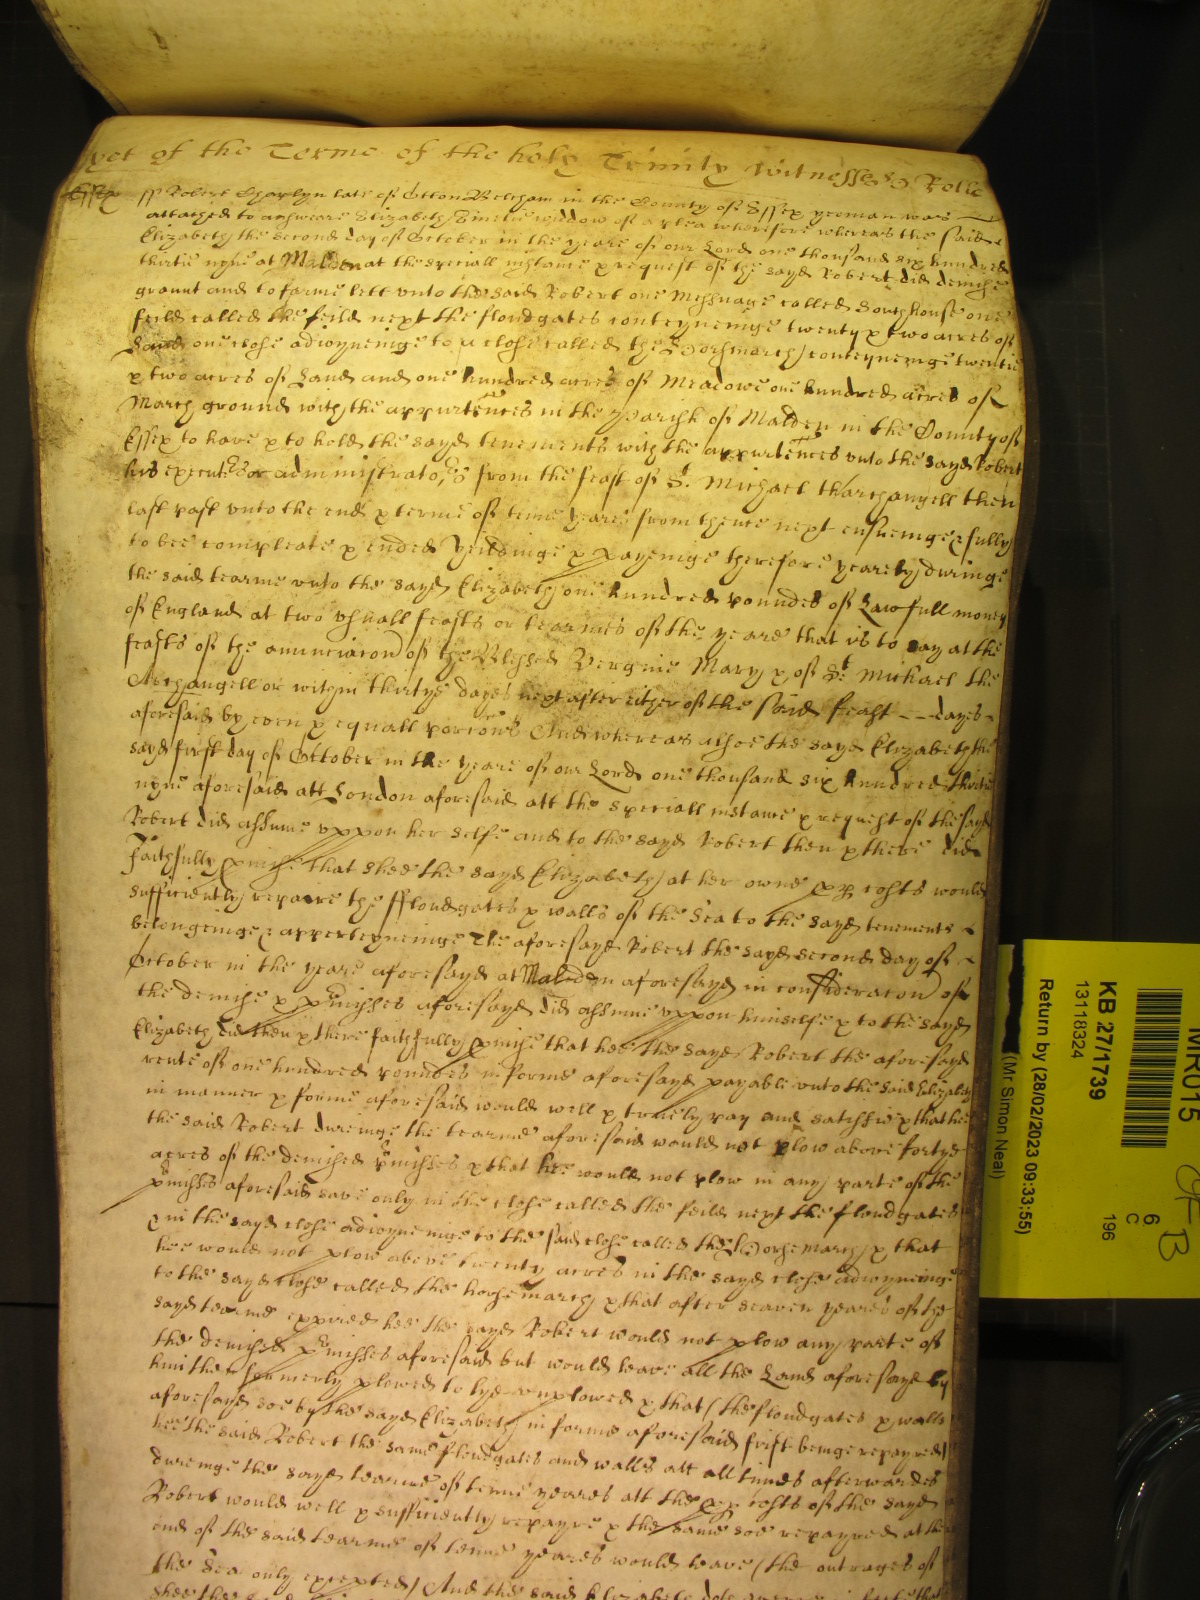 yet of the Terme of the holy Trinity Witnesse Rolle
Essex ss Robert late of Belcham in the County of Essex yeoman was
attached to answeare Elizabeth widdow of a plea wherefore whereas the said
Elizabeth the second day of October in the yeare of our Lord one thousand six hundred
thirtie nyne at Malden at the speciall instance & request of the sayd Robert did demise
graunt and to farme lett unto the said Robert one Messuage called Southouse one
feild called the feild next the floudgates conteyneinge twenty & two acres of
Land one close adioyneinge to a close called the Horsmarch conteyneinge twentie
& two acres of Land and one hundred acres of Meadowe one hundred acres of
March ground with the appurtences in the Parish of Malden in the County of
Essex to have & to hold the sayd tenements with the appurtences unto the sayd Robert
his execut^rs or administrato^rs from the feast of S^t Michael th'archangell then
last past unto the end & terme of tenne yeares from thence next ensueinge & fully
to bee compleate & ended Yeildinge & payeinge therefore yearely duringe
the said tearme unto the sayd Elizabeth one hundred poundes of Lawfull money
of England at two usuall feasts or tearmes of the yeare that is to say at the
feasts of the anunciacon of the Blessed Vergine Mary & of S^t Michael the
Archangell or within thirtye dayes next after either of the said feast -- dayes
aforesaid by even & equall porcions And whereas alsoe the sayd Elizabeth the
sayd first day of October in the yeare of our Lord one thousand six hundred thirtie
nyne aforesaid att London aforesaid att the speciall instance & request of the sayd
Robert did assume uppon her selfe and to the sayd Robert then & there did
faithfully pmise that shee the sayd Elizabeth at her owne pp costs would
sufficiently repaire the ffloudgates & walls of the Sea to the sayd tenements
belongeinge & apperteyneinge The aforesayd Robert the sayd second day of
October in the yeare aforesayd at Maldon aforesayd in consideracon of
the demise & p^rmisses aforesayd did assume uppon himselfe & to the sayd
Elizabeth did then & there faithfully pmise that hee the sayd Robert the aforesayd
rente of one hundred poundes in forme aforesayd payable unto the said Elizabeth
in manner & forme aforesaid would well & truely pay and satisfie & that hee
the said Robert dureinge the tearme aforesaid would not plow above fortye
acres of the demised p^rmisses & that hee would not plow in any parte of the
p^rmisses aforesaid save only in the close called the feild next the floudgates
& in the sayd close adioyneinge to the said close called the Horsemarch & that
hee would not plow above twenty acres in the sayd close adioyneinge
to the sayd close called the horsemarch & that after seaven yeares of the
sayd tearme expired hee the sayd Robert would not plow any parte of
the demised p^rmisses aforesaid but would leave all the Land aforesayd by
him the formerly plowed to lye unplowed & that (the floudgates & walls
aforesayd soe by the sayd Elizabeth in forme aforesaid first beinge repayred)
hee the said Robert the same floudgates and walls att all times afterwardes
dureinge the sayd tearme of tenne yeares att the pp costs of the sayd
Robert would well & sufficiently repayre & the same soe repayred at the
end of the said tearme of tenne yeares would leave (the outrages of
the Sea only excepted) And the said Elizabeth
MR015
KB 27/1739
13118324
Return by (28/02/2023 09:33:55)
(Mr Simon Neal)
6
C
196